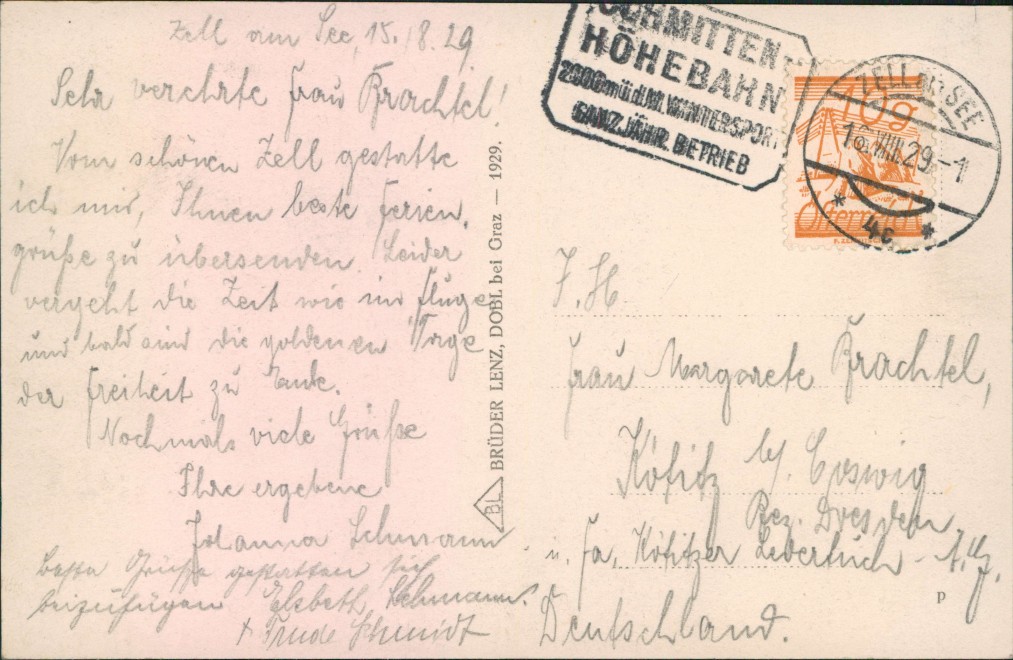 Zell am See, 15./8.29
Sehr verehrte Frau Brachtel!
Vom schönen Zell gestatte
ich mir, Ihnen beste Ferien.
grüße zu übersenden. Leider
vergeht die Zeit wie im Fluge
und bald sind die goldenen Tage
der Freiheit zu Ende.
Nochmals viele Grüße
Ihre ergebene
Johanna Lehmann
Beste Grüße gestatten sich
beizufügen Elsbeth Lehmann.
+ Trude Schmidt
BL BRÜDER LENZ, DOBL bei Graz — 1929.
SCHMITTEN-
HÖHEBAHN
2000m ü.d.M. WINTERSPORT
GANZJÄHR. BETRIEB
10g
Österreich
ZELL AM SEE
16.VIII.29.-1
* 4c *
Frau Margarete Brachtel,
Kötitz b/ Coswig
Bez. Dresden
Fa. Kötitzer Ledertuch-
Deutschland.
p